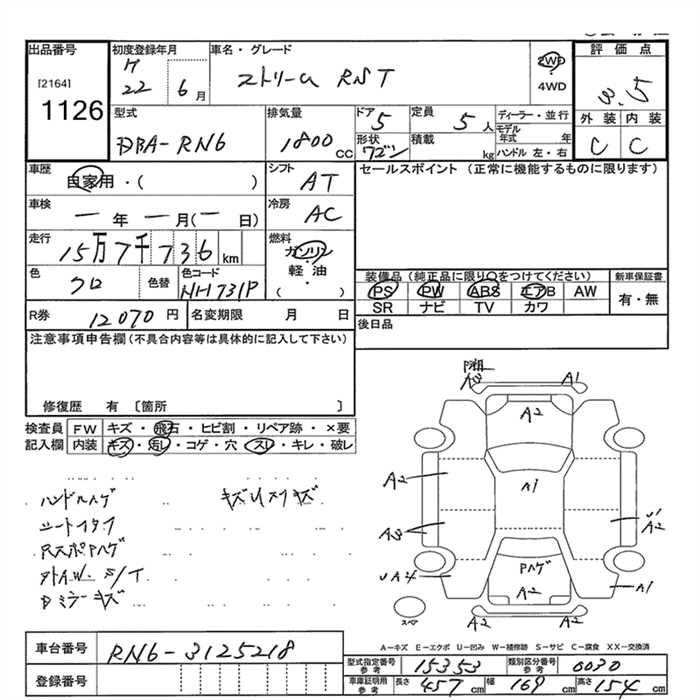 出品番号 初度登録年月 車名・グレード 評価点
[2164] 22年 6月 ストリーム RST 2WD 4WD 3.5
1126
型式 排気量 ドア 定員 ディーラー・並行 外装 内装
DBA-RN6 1800cc 5 5人 モデル年式 年 C C
形状 ワゴン 積載 kg ハンドル 左・右
車歴 自家用・( ) シフト AT セールスポイント (正常に機能するものに限ります)
車検 ー年 ー月(ー日) 冷房 AC
走行 15万7千736km 燃料 ガソリン 軽油 ( )
色 クロ 色替 色コード NH731P
装備品(純正品に限り○をつけてください) 新車保証書
PS PW ABS エアB AW 有・無
SR ナビ TV カワ
R券 12070円 名変期限 月 日 後日品
注意事項申告欄(不具合内容等は具体的に記入して下さい)
修復歴 有 〔箇所 〕
検査員記入欄 FW キズ・飛石・ヒビ割・リペア跡・×要
内装 キズ・汚レ・コゲ・穴・スレ・キレ・破レ
ハンドルハゲ キズUスリキズ
シートイタフ
RスポPハゲ
外A.W. S/T
Dミラーキズ
A3 A1
A2
A2 A1 U1 A2
A3
UA4 Pハゲ A1
A2
スペア
A-キズ E-エクボ U-凹み W-補修跡 S-サビ C-腐食 XX-交換済
車台番号 RN6-3125218
登録番号
型式指定番号 参考 15353 類別区分番号 参考 0030
車庫証明用 参考 長さ 457cm 幅 169cm 高さ 154cm